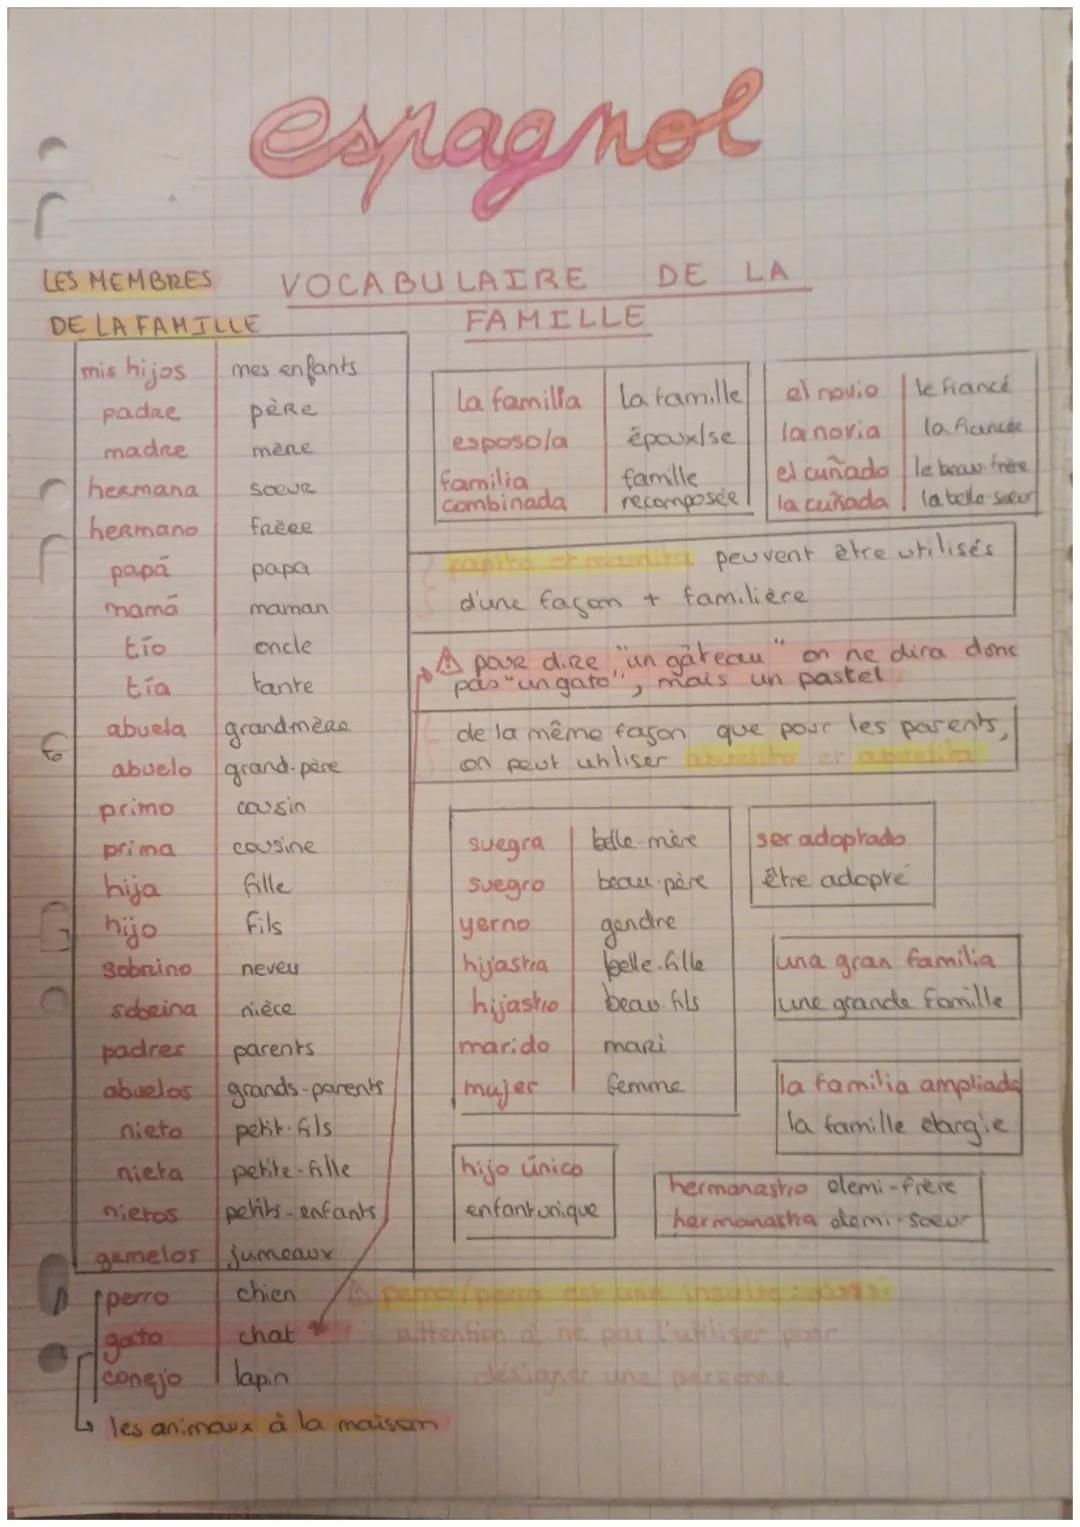 espagnol
LES MEMBRES
DE LA FAMILLE
VOCABULAIRE DE LA
FAMILLE
mis hijos mes enfants
padre père
madre mère
hermana soeur
hermano frère
papá papa
mamá maman
tío oncle
tía tante
abuela grand mère
abuelo grand-père
primo cousin
prima cousine
hija fille
hijo fils
sobrino neveu
sobrina nièce
padres parents
abuelos grands-parents
nieto petit-fils
nieta petite-fille
nietos petits-enfants
gemelos jumeaux
perro chien
gato chat
conejo lapin
les animaux à la maison
la familia la famille
esposo/a époux/se
familia famille
combinada recomposée
el novio le fiancé
la novia la fiancée
el cuñado le beau-frère
la cuñada la belle-soeur
papito et mamita peuvent être utilisés
d'une façon + familière
⚠ pour dire "un gâteau" on ne dira donc
pas "un gato", mais un pastel
de la même façon que pour les parents,
on peut utiliser abuelito et abuelita
suegra belle-mère
suegro beau-père
yerno gendre
hijastra belle-fille
hijastro beau-fils
marido mari
mujer femme
ser adoptado
être adopté
una gran familia
une grande famille
la familia ampliada
la famille élargie
hijo único
enfant unique
hermanastro demi-frère
hermanastra demi-soeur
⚠ perro/perra est une insulte :
attention à ne pas l'utiliser pour
désigner une personne